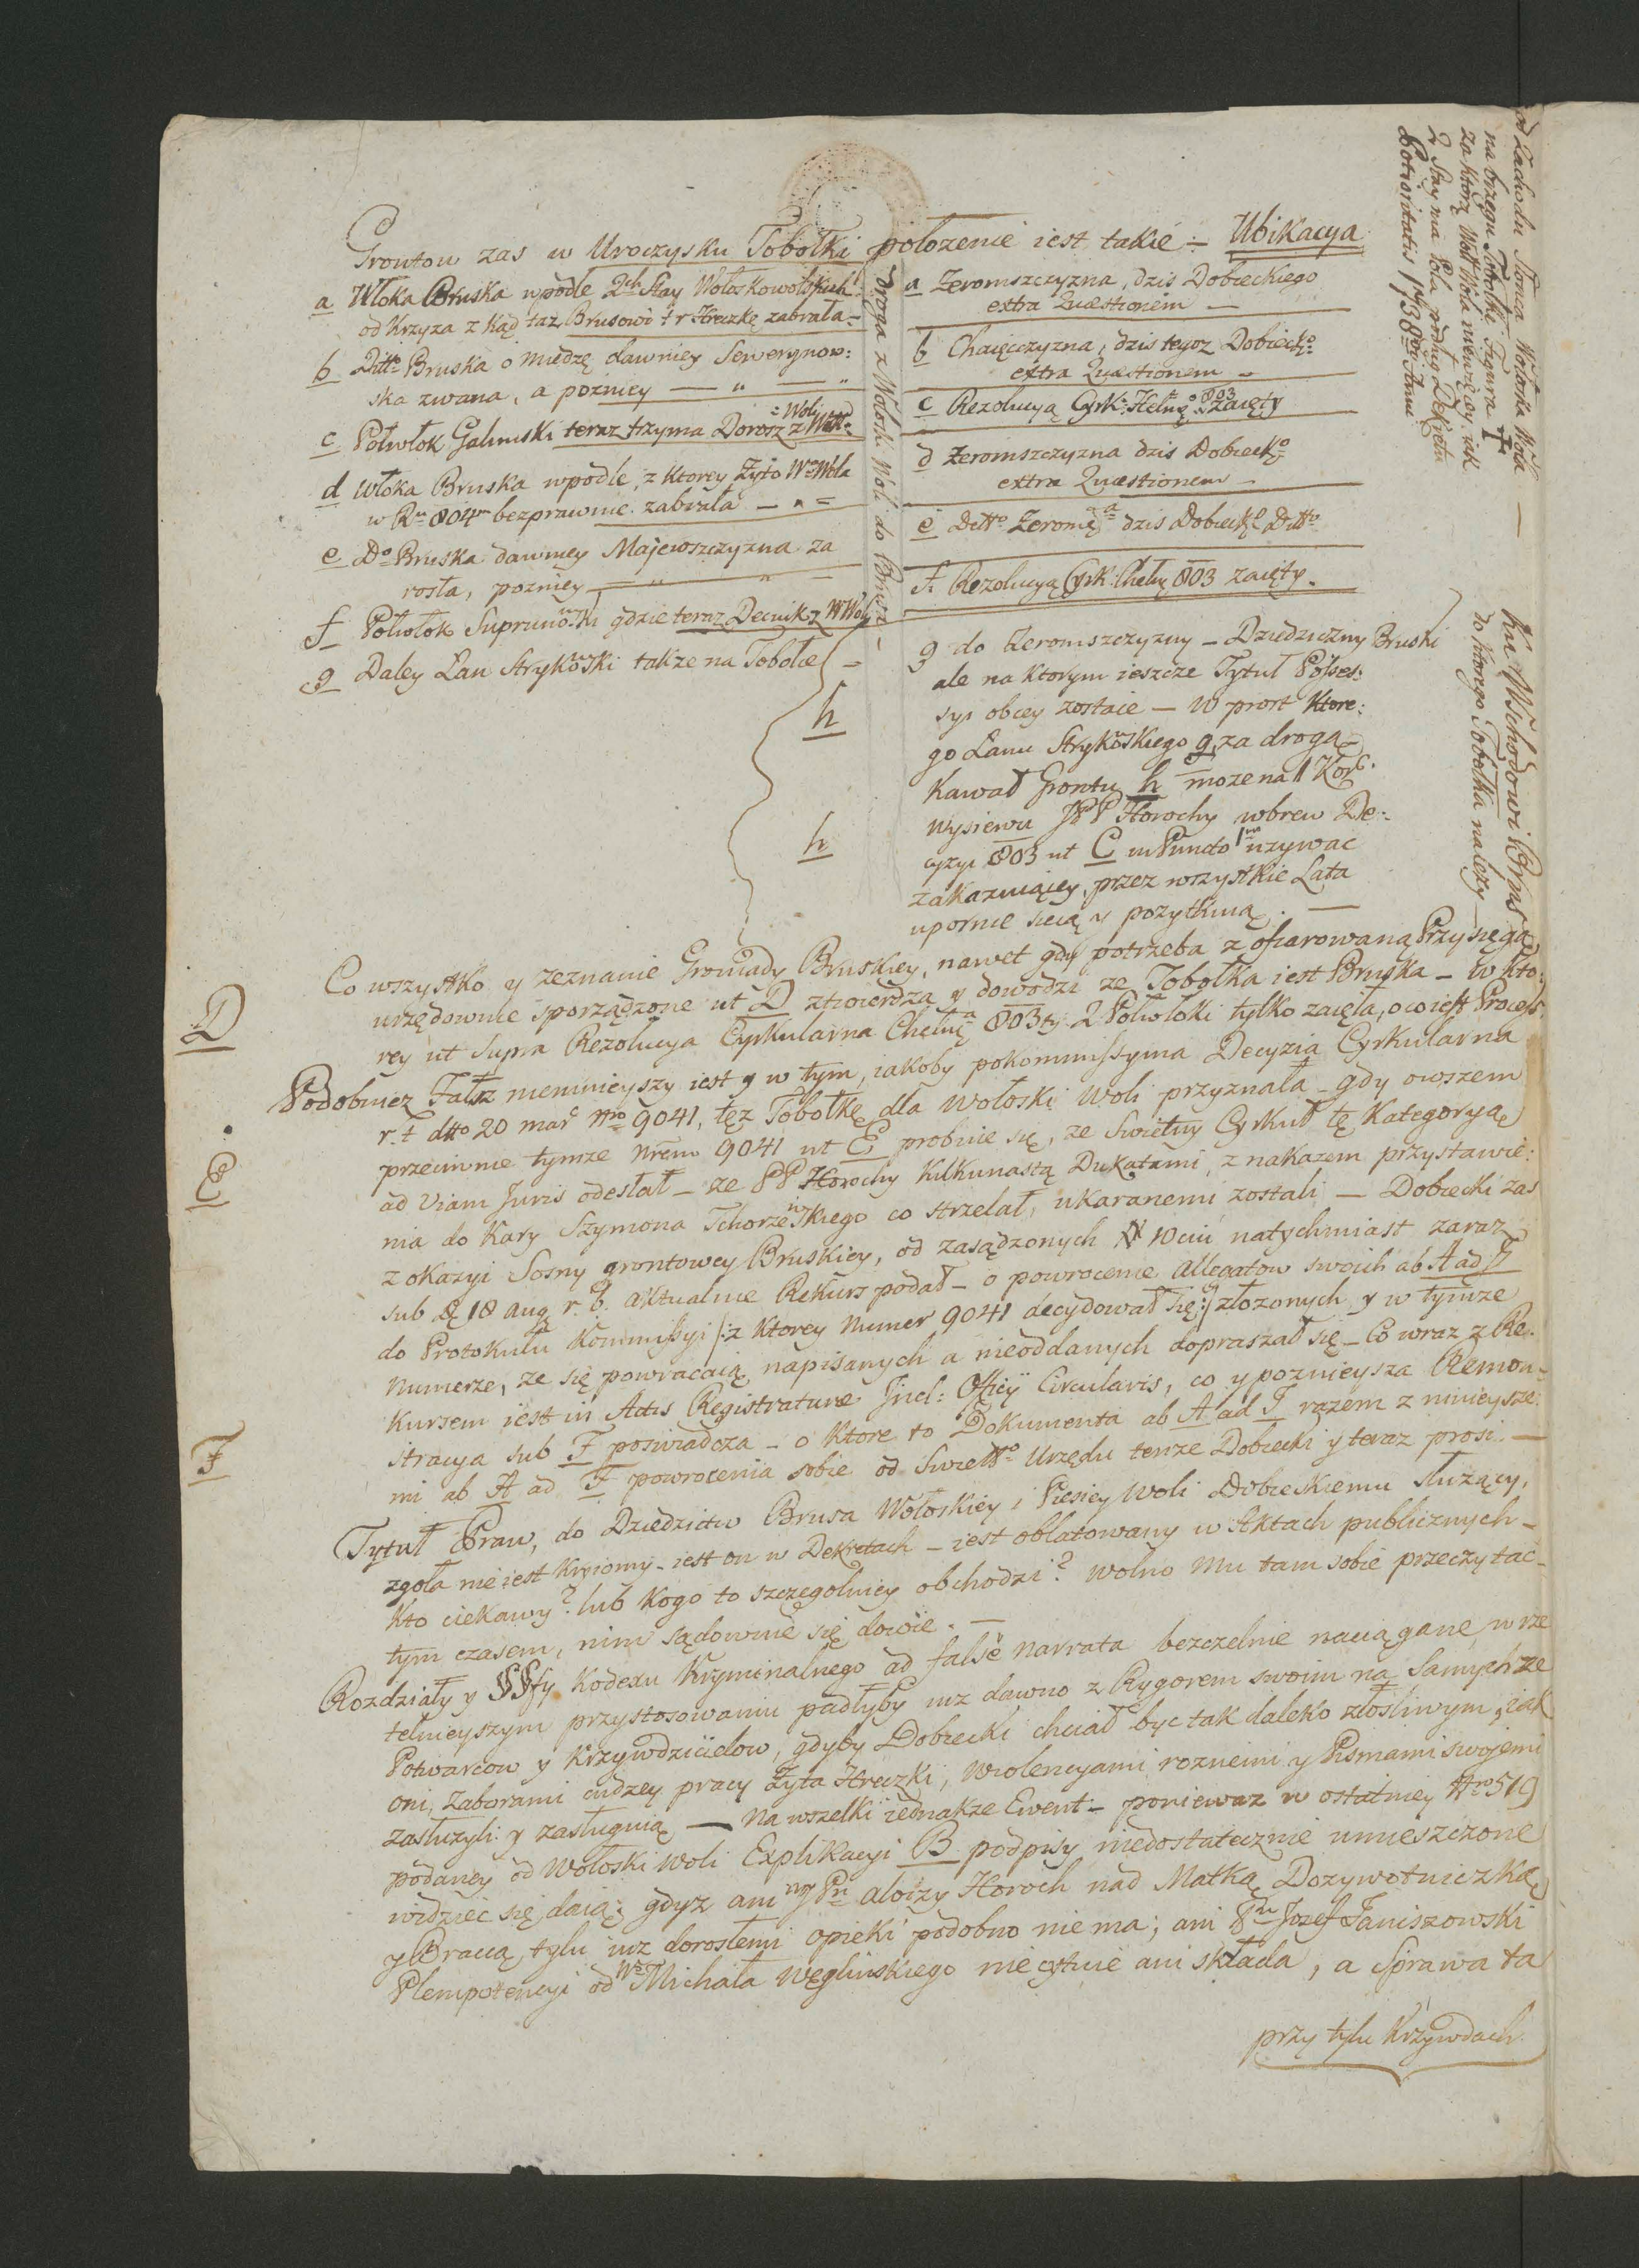 Grontow zas w Uroczysku Tobołki położenie iest takie = Ubikacya
a Włoka Bruska wpodle 2ch Stay Wołoskowolskich
od Krzyza z kąd taz Brusowi t r Hreczkę zabrała =
b Ditto Bruska o miedzę dawniey Sewerynow:
ska zwana, a pozniey — „ — „
c Połwłok Galinuski teraz trzyma Dorosz z Woło:
= Woli
d Włoka Bruska wpodle, z ktorey Żyto Wa Wola
w Ru 804m bezprawnie zabrała — „ =
e Do Bruska dawniey Majewszczyzna za
rosła, pozniey — „ „ —
f Połwłok Suprunowski gdzie teraz Decuik z WWoli
g Daley Łan Strykowski takze na Tobołce —
h
h
Droga z Wołoski Woli do Brusa —
a Żeromszczyzna, dzis Dobeckiego
extra Quæstionem —
b Chaięczyzna, dzis tegoz Dobieckgo
extra Quæstionem —
c Rezolucyą Cyrk: Hełmę 803 zaięty
d Żeromszczyzna dzis Dobieckgo
extra Quæstionem —
e Ditto Żeromsa dzis Dobieckgo Ditto
f. Rezolucyą Cyrk: Chełmę 803 zaięty.
g do Żeromszczyzny — Dziedziczny Bruski
ale na ktorym ieszcze Tytuł Posses:
syi obcey zostaie — W prost ktore:
go Łanu Strykowskiego g, za drogą
kawał Grontu h moze na 1 Korc.
wysiewu JPP Horochy wbrew De:
cyzyi 803 ut C in Puncto 1mo uzywac
zakazuiącey, przez wszystkie Lata
upornie sieią y pozytkuią. —
od Zachodu Słonca Wołoska Wola —
na brzegu Tobołki Figura †
za ktorą WołłWola niewięcey, iak
2 Stay ma Pola podług Dekretu
Potioritatis 1738go Anni
Ku Wschodowi Brus
do ktorego Tobołka nalezy
Co wszystko y zeznanie Gromady Bruskiey, nawet gdy potrzeba z ofiarowaną Przysięgą
urzędownie sporządzone ut D ztwierdza y dowodzi ze Tobołka iest Bruska — w kto:
rey ut Supra Rezolucya Cyrkularna Chełmę 803ty 2 Połwłoki tylko zaięła, o co iest Process.
Podobniez Fałsz niemnieyszy iest y w tym, iakoby pokommissyina Decyzia Cyrkularna
r. t dtto 20 mar. Nro 9041, tęz Tobołkę dla Wołoski Woli przyznała — gdy owszem
przeciwnie tymze Nrem 9041 ut E probuie się, ze Swietny Cyrkuł tę Kategoryą
ad Viam Juris odesłał — ze PP Horochy kilkunastą Dukatami, z nakazem przystawie:
nia do Kary Szymona Tchorzewskiego co strzelał, ukaranemi zostali — Dobiecki zas
z okazyi Sosny grontowey Bruskiey, od zasądzonych # 10ciu natychmiast zaraz
sub 18 aug r. b. aktualnie Rekurs podał — o powrocenie allegatow swoich ab A ad F
do Protokułu Kommissyi /: z ktorey Numer 9041 decydował się :/ złozonych y w tymze
Numerze, ze się powracaią napisanych a nieoddanych dopraszał się — Co wraz z Re:
kursem iest in Actis Registraturæ Incl: Officy Circularis, co y poznieysza Remon:
stracya sub F poswiadcza — o ktore to Dokumenta ab A ad F razem z ninieysze:
mi ab A ad F powrocenia sobie od Swietto Urzędu tenze Dobiecki y teraz prosi. —
Tytuł Praw, do Dziedzictw Brusa Wołoskiey i Piesiey Woli Dobieckiemu słuzący,
zgoła nie iest kryiomy — iest on w Dekretach — iest oblatowany w Aktach publicznych —
kto ciekawy? lub kogo to szczegolniey obchodzi? wolno mu tam sobie przeczytac —
tym czasem, nim sądownie się dowie. —
Rozdziały y §§fy Kodexu Kryminalnego ad false narrata bezczelnie naciągane, w rze
telnieyszym przystosowaniu padłyby iuz dawno z Rygorem swoim na Samychze
Potwarcow y Krzywdzicielow, gdyby Dobiecki chciał byc tak daleko złosliwym, iak
oni, zaborami cudzey pracy Żyta Hreczki, Wiolencyami roznemi y Pismami swojemi
zasłuzyli y zasługuią — Na wszelki iednakze Ewent — poniewaz w ostatniey Nro 519
podaney od Wołoski Woli Explikacyi B podpisy niedostatecznie umieszczone
widziec się daią; gdyz ani Pn aloizy Horoch nad Matką Dozywotniczką
y Bracią, tylu iuz dorosłemi opieki podobno nie ma; ani Pn Jozef Janiszowski
Plempotencyi od Wo Michała Węglinskiego nie cytuie ani składa, a Sprawa ta
przy tylu Krzywdach
D
E
F